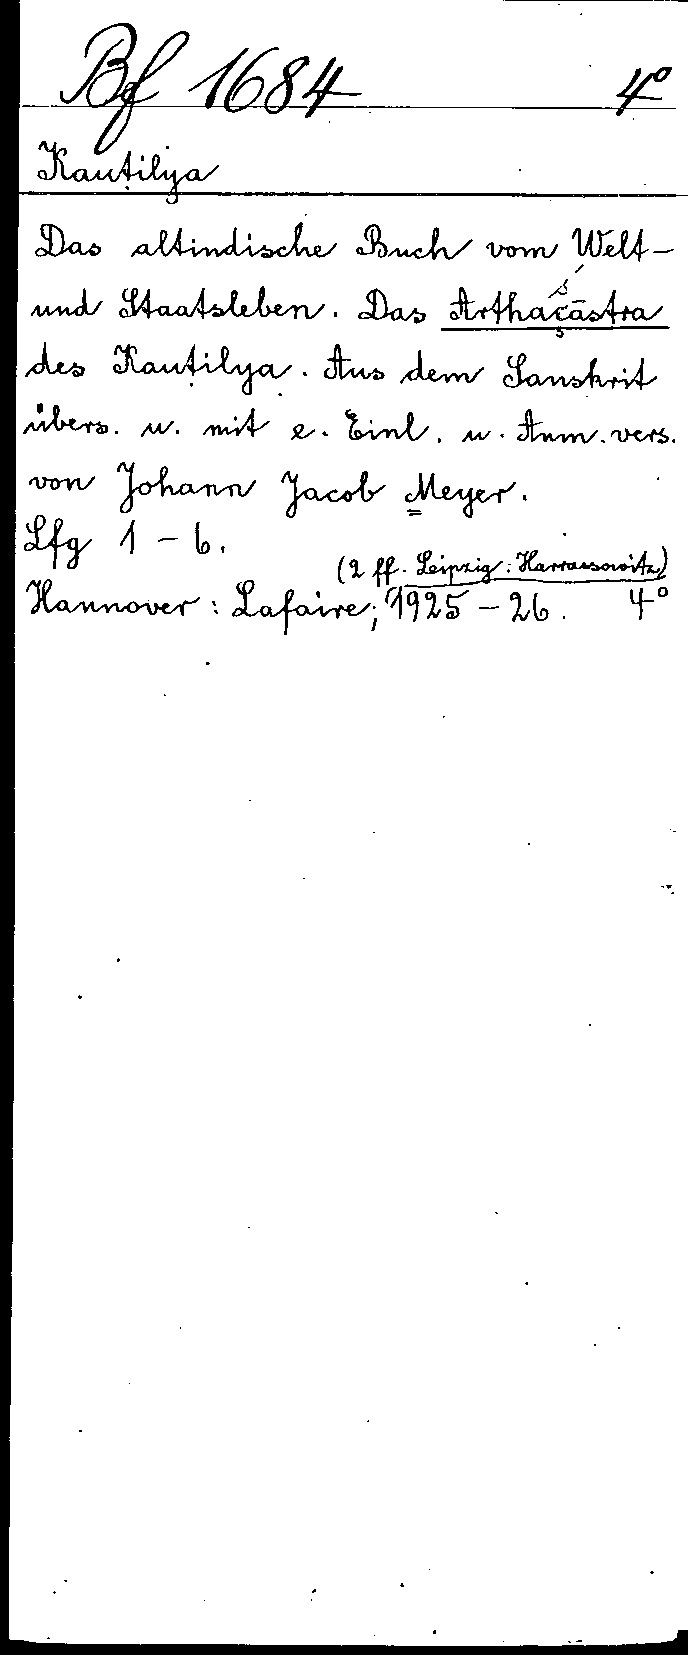 Bf 1684 4°
Kauṭilya
Das altindische Buch vom Welt-
und Staatsleben. Das Arthaçāstra
des Kauṭilya. Aus dem Sanskrit
übers. u. mit e. Einl. u. Anm. vers.
von Johann Jacob Meyer.
Lfg 1-6.
(2 ff. Leipzig: Harrassowitz)
Hannover: Lafaire; 1925-26. 4°